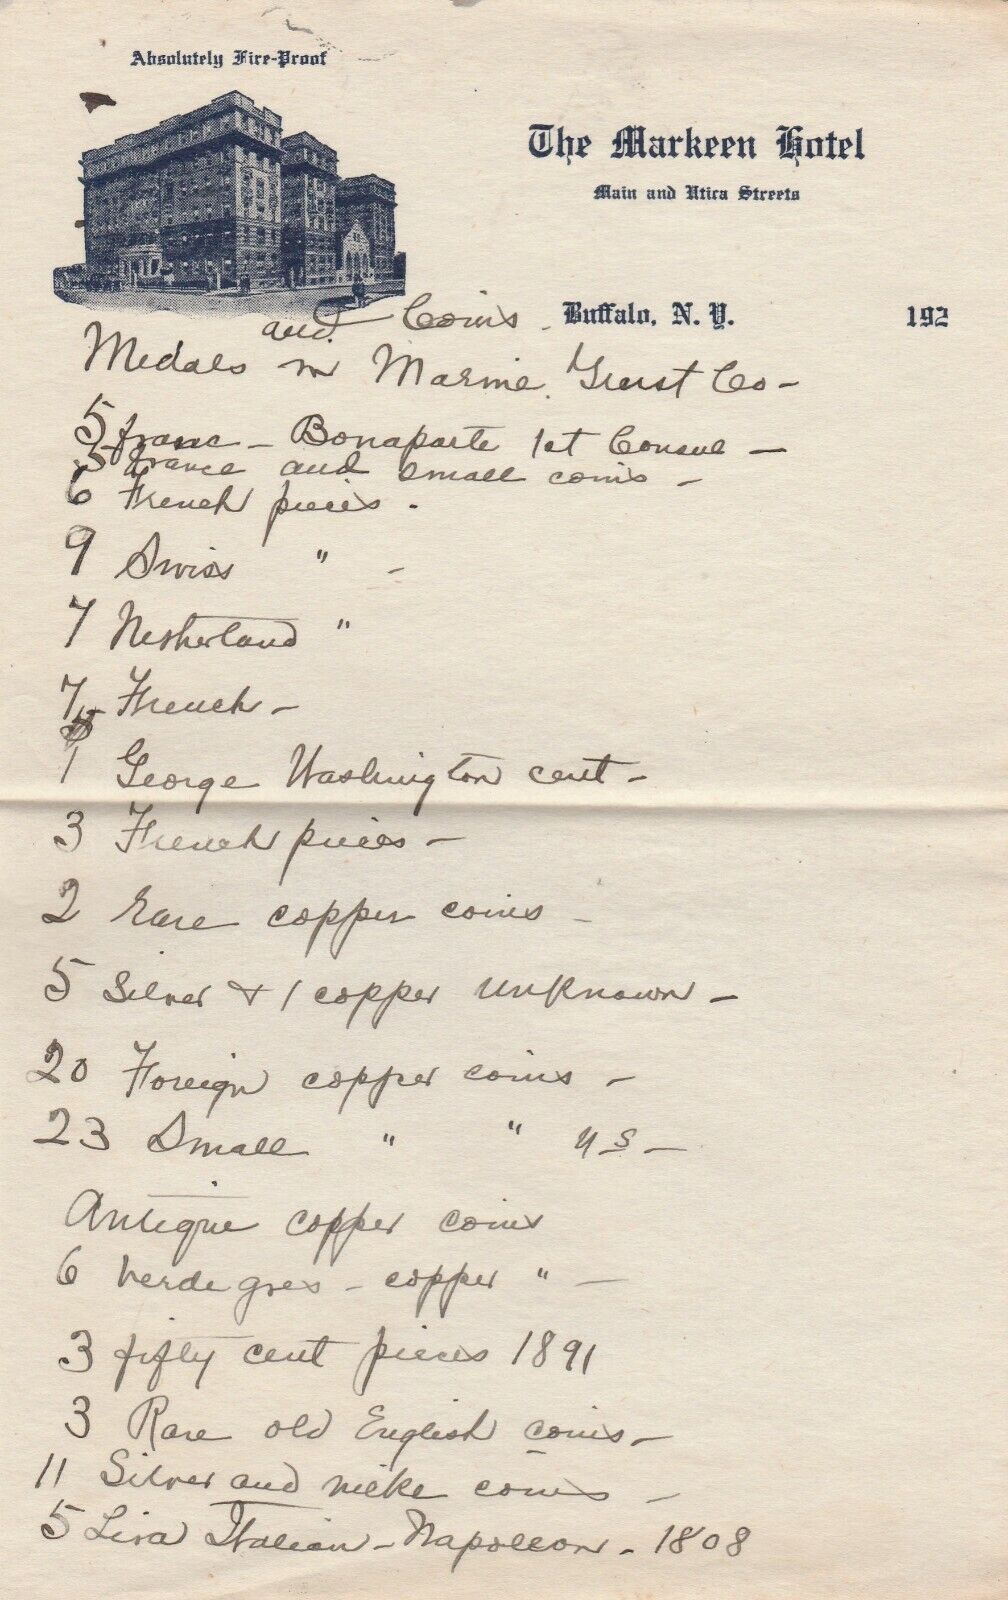 Absolutely Fire-Proof
The Markeen Hotel
Main and Utica Streets
Buffalo, N. Y. 192
and Coins
Medals in Marine Trust Co -
5 franc - Bonaparte 1st Consul -
5 france and small coins -
6 French pieces -
9 Swiss " -
7 Netherland "
7 French -
1 George Washington cent -
3 French pieces -
2 Rare copper coins -
5 Silver & 1 copper unknown -
20 Foreign copper coins -
23 Small " " U S -
Antique copper coins
6 verde gres - copper " -
3 fifty cent pieces 1891
3 Rare old English coins -
11 Silver and nicke coins -
5 Lira Italian - Napoleon - 1808